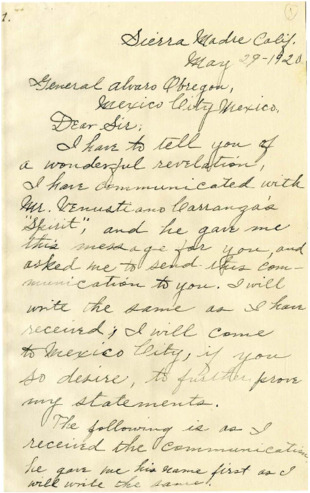 1.
1
Sierra Madre Calif.
May 29-1920,
General Alvaro Obregon,
Mexico City Mexico,
Dear Sir;
I have to tell you of
a wonderful revelation,
I have communicated with
Mr. Venustiano Carranza's
"Spirit", and he gave me
this message for you, and
asked me to send this com-
munication to you. I will
write the same as I have
received; I will come
to Mexico City, if you
so desire, to further prove
my statements.
The following is as I
received the communication
he gave me his name first as I
will write the same: